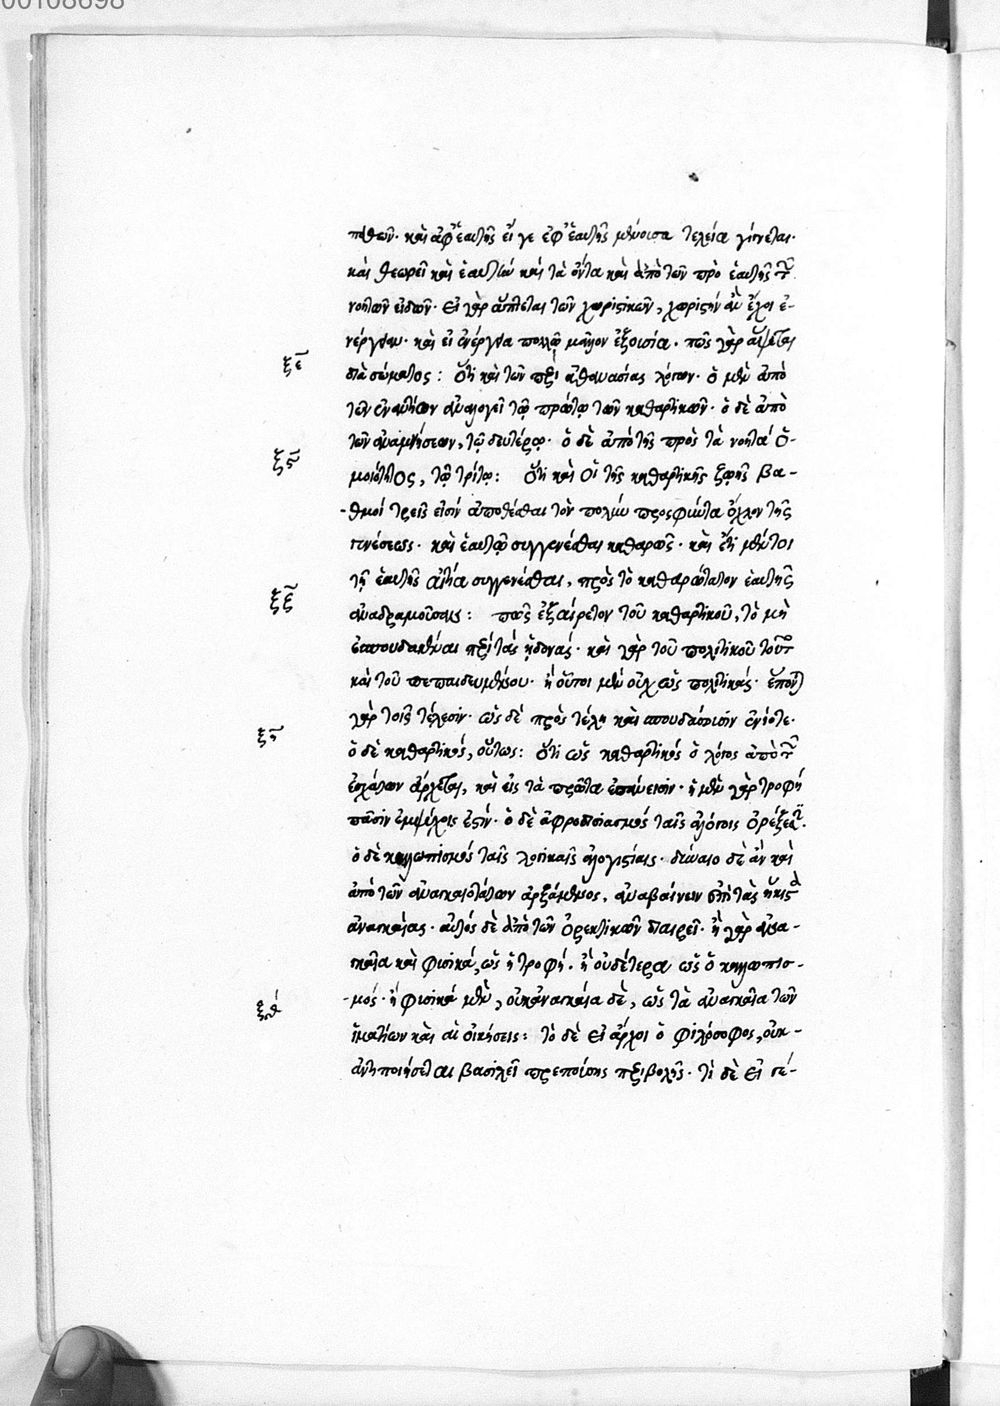 00108698
παθῶν· καὶ ἀφ' ἑαυτῆς εἴ γε ἐφ' ἑαυτῆς μένουσα τελεία γίνεται·
καὶ θεωρεῖ καὶ ἑαυτὴν καὶ τὰ ὄντα καὶ ἀπὸ τῶν πρὸ ἑαυτῆς τῶν
νοητῶν εἰδῶν· εἰ γὰρ ἅπτεται τῶν χωριστικῶν, χωριστὴν ἂν ἔχοι ἐ-
νέργειαν· καὶ εἰ ἐνέργεια πολλῷ μᾶλλον ἐξουσία· πῶς γὰρ ἅψεται
ξε
διὰ σώματος: ὅτι καὶ τῶν περὶ ἀθανασίας λόγων· ὁ μὲν ἀπὸ
τῶν ἐναντίων ἀναλογεῖ τῷ πρώτῳ τῶν καθαρτικῶν· ὁ δὲ ἀπὸ
τῶν ἀναμνήσεων, τῷ δευτέρῳ· ὁ δὲ ἀπὸ τῆς πρὸς τὰ νοητὰ ὁ-
ξς
μοιότητος, τῷ τρίτῳ: ὅτι καὶ οἱ τῆς καθαρτικῆς ζωῆς βα-
θμοὶ τρεῖς εἰσίν ἀποθέσθαι τὸν πολὺν προσφύντα ὄχλον τῆς
γενέσεως· καὶ ἑαυτῷ συγγενέσθαι καθαρῶς· καὶ ἔτι μέντοι
τῇ ἑαυτῆς αἰτίᾳ συγγενέσθαι, πρὸς τὸ καθαρώτατον ἑαυτῆς
ξζ
ἀναδραμούσαις: πῶς ἐξαίρετον τοῦ καθαρτικοῦ, τὸ μὴ
ἐσπουδακέναι περὶ τὰς ἡδονάς· καὶ γὰρ τοῦ πολιτικοῦ τοῦτο
καὶ τοῦ πεπαιδευμένου· ἢ οὗτοι μὲν οὐχ ὡς πολιτικάς· ἕπονται
γὰρ τοῖς τέλεσιν· ὡς δὲ πρὸς τέλη καὶ σπουδάζουσιν ἐνίοτε·
ξη
ὁ δὲ καθαρτικός, οὕτως: ὅτι ὡς καθαρτικός ὁ λόγος ἀπὸ τῶν
ἐσχάτων ἄρχεται, καὶ εἰς τὰ πρῶτα ἐπάνεισιν· ἡ μὲν γὰρ τροφή
πᾶσιν ἐμψύχοις ἐστίν· ὁ δὲ ἀφροδισιασμός ταῖς ἀλόγοις ὀρέξεσιν·
ὁ δὲ καλλωπισμός ταῖς λογικαῖς ἀλογιστίαις· δύναιο δὲ ἂν καὶ
ἀπὸ τῶν ἀναγκαιοτάτων ἀρξάμενος, ἀναβαίνειν ἐπὶ τὰς ἥκιστα
ἀναγκαίας· αὐτός δὲ ἀπὸ τῶν ὀρεκτικῶν διαιρεῖ· ἢ γὰρ ἀνα-
γκαῖα καὶ φυσικά, ὡς ἡ τροφή· ἢ οὐδέτερα ὡς ὁ καλλωπισ-
ξθ
μός· ἢ φυσικὰ μὲν, οὐκ ἀναγκαῖα δὲ, ὡς τὰ ἀναγκαῖα τῶν
ἱματίων καὶ αἱ οἰκήσεις: τὸ δὲ εἰ ἄρχοι ὁ φιλόσοφος, οὐκ
ἀντιποιήσεται βασιλεῖ πρεπούσης περιβολῆς· τί δὲ εἰ σέ-